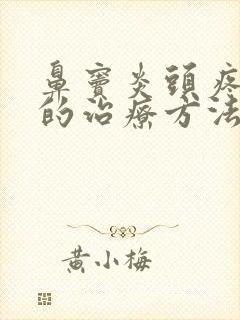 鼻竇炎頭疼
的治療方法
黃小梅